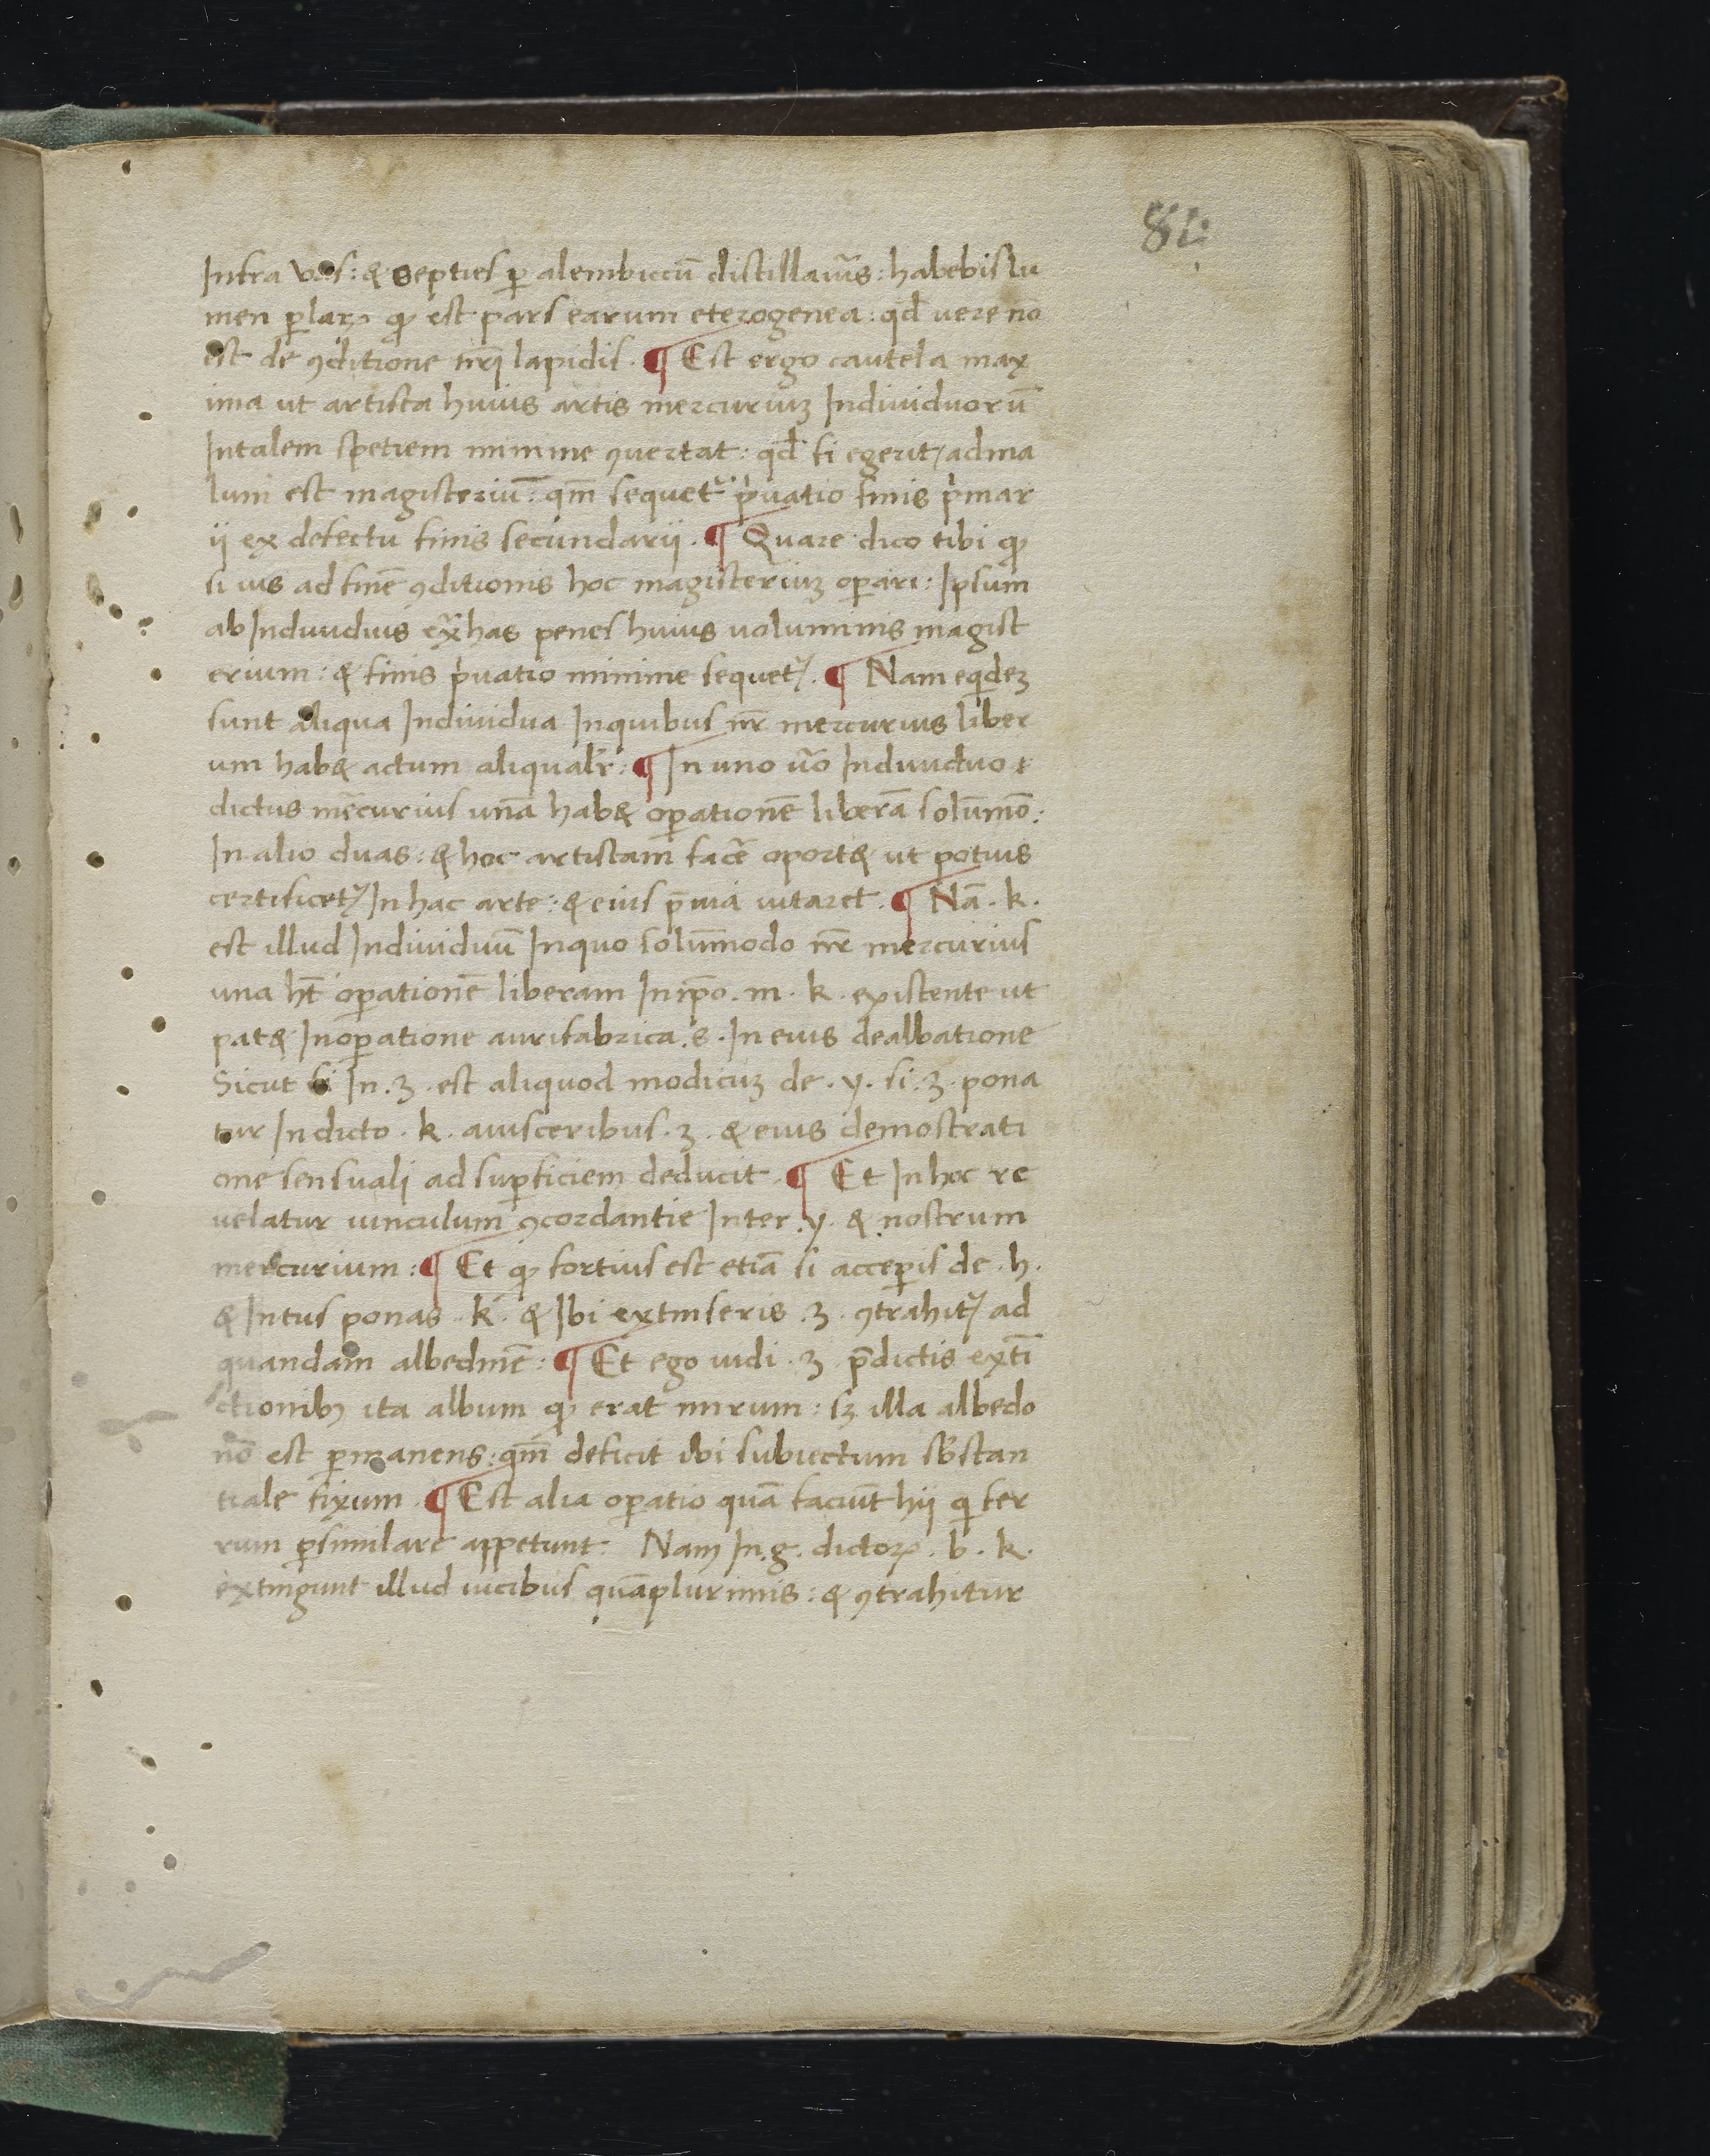 81:
Infra vas: & septies ꝑ alembiccū distillaūis: habebis lu
men ꝑlaꝝ ꝙ est pars earum eterogenea: qd̄ vere nō
est de ꝯditione nr̄i lapidis. ¶ Est ergo cautela max
ima ut artista huius artis mercuriuꝫ Indiuiduorū
Intalem spetiem minime ꝯuertat: qd̄ si egerit, adma
lum est magisteriū: qm̄ sequet̄ pͥuatio finis pͥmar
ij ex defectu finis secundarij. ¶ Quare dico tibi ꝙ
si uis ad finē ꝯditionis hoc magisteriuꝫ oꝑari: Ipsum
ab Indiuiduis ext̃has penes huius uoluminis magist
erium: & finis pͥuatio minime sequet᷒. ¶ Nam eqͥdeꝫ
sunt aliqua Indiuidua Inquibus nr̄ mercurius liber
um hab& actum aliqualr̄: ¶ In uno ūo Indiuiduo
dictus mercurius unā hab& oꝑationē liberā solūmō:
In alio duas: & hoc artistam facē oport& ut potius
certificet᷒ In hac arte: & eius p̄mia uitaret. ¶ Nā. k.
est illud Indiuiduū Inquo solūmodo nr̄ mercurius
una ht̄ oꝑationē liberam In ip̄o. m. k. existente ut
pat& Inoꝑatione aurifabrica. s. In eius dealbatione
Sicut si In. ꝫ. est aliquod modicuꝫ de. y. si. ꝫ. pona
tur In dicto. k. auisceribus. ꝫ. & eius demostrati
one sensuali ad suꝑficiem deducit. ¶ Et In hoc re
uelatur uinculum ꝯcordantie Inter. y. & nostrum
mercurium: ¶ Et ꝙ fortius est etiā si acceꝑis de. h.
& Intus ponas. k. & Ibi extinseris. ꝫ. ꝯtrahit᷒ ad
quandam albedinē: ¶ Et ego uidi. ꝫ. p̄dictis extī
ctionibꝫ ita album ꝙ erat mirum: sꝫ illa albedo
nō est ꝑmanens: qm̄ deficit ibi subiectum sb̄stan
tiale fixum. ¶ Est alia oꝑatio quā faciūt hij qͥ fer
rum ꝑsimilare appetunt. Nam In. g. dictoꝝ. b. k.
extingunt illud uicibus quāplurimis: & ꝯtrahitur